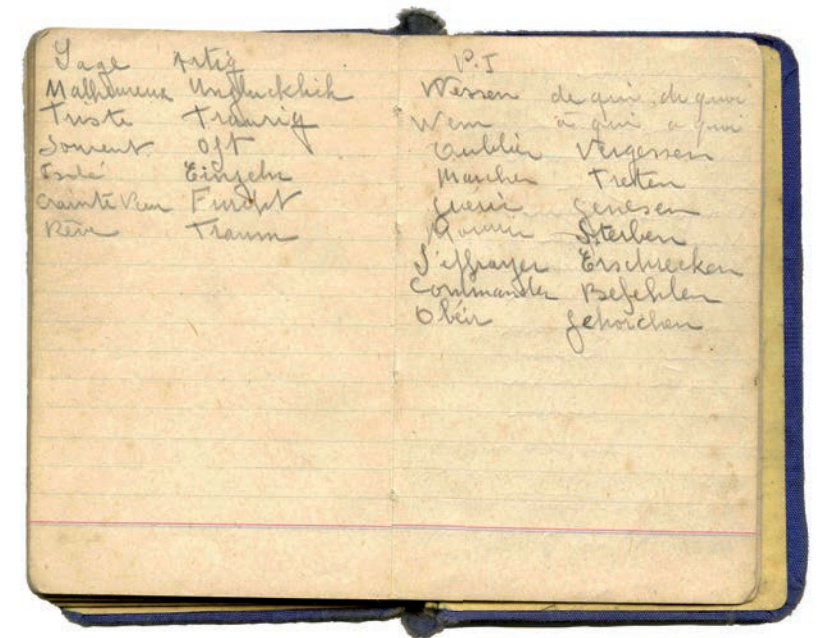 Sage Artig
Malheureux Unglucklich
Triste Traurig
Souvent Oft
Isolé Einzeln
crainte Furcht
Rêve Traum
P.I
Wessen de qui, de quoi
Wem à qui a quoi
Oublier Vergessen
Marcher Tretten
guérir genesen
Mourir Sterben
S'effrayer Erschrecken
Commander Befehlen
Obéir gehorchen